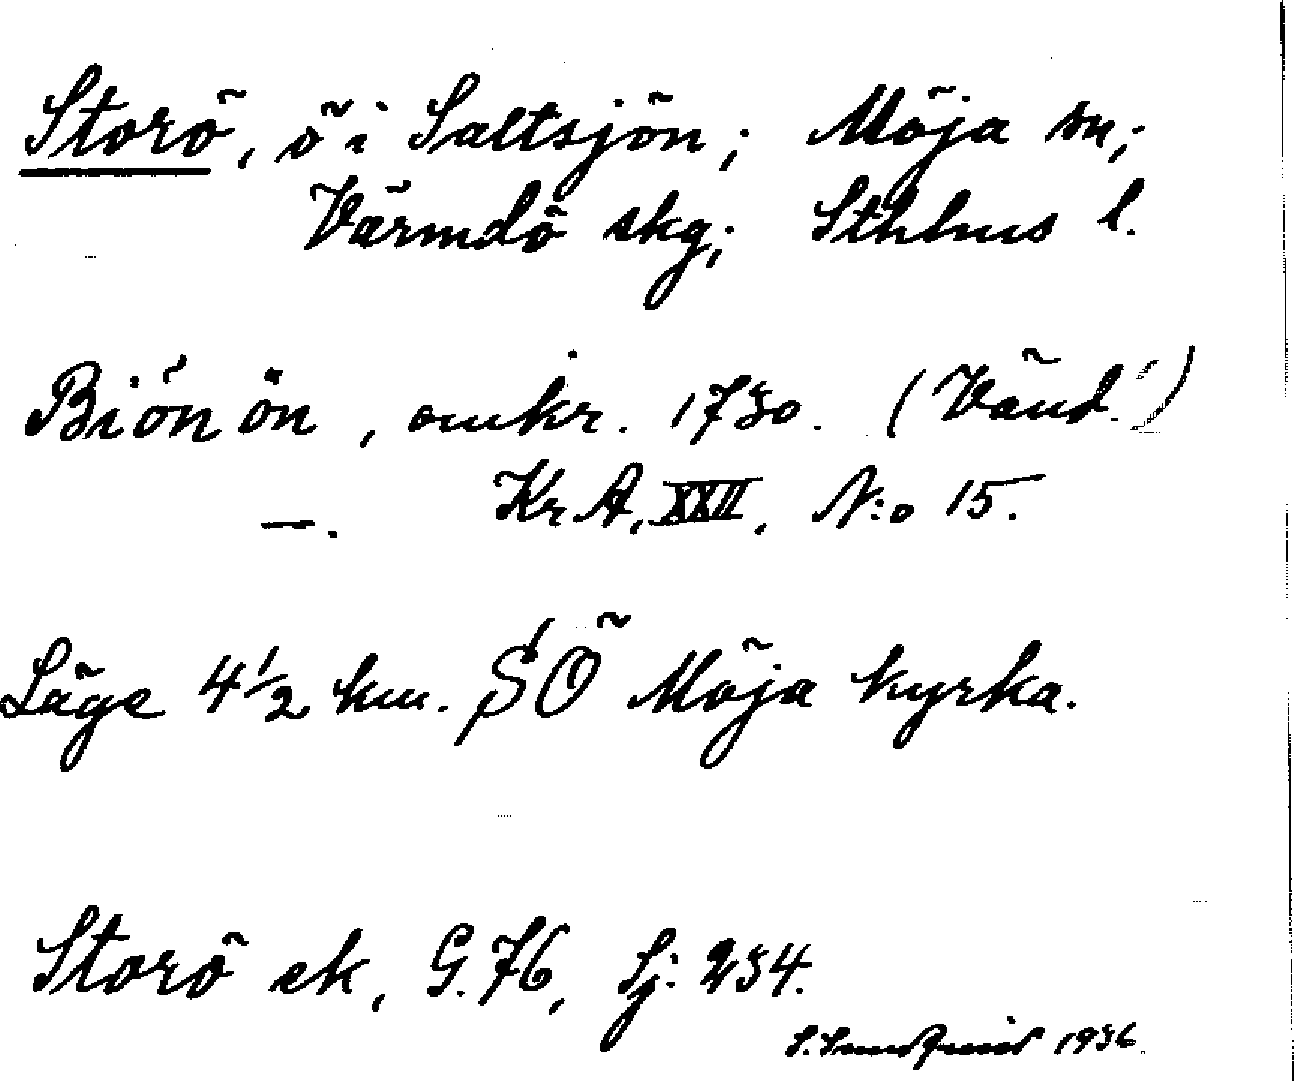 Storö, ö i Saltsjön; Möja sn;
Värmdö skg; Sthlms l.
Biön ön, omkr. 1730. (Vänd!)
—. Kr A, XXII, N:o 15.
Läge 4 1/2 km. SÖ Möja kyrka.
Storö ek, G. 76, Sj: 234.
S. Sundqvist 1936.